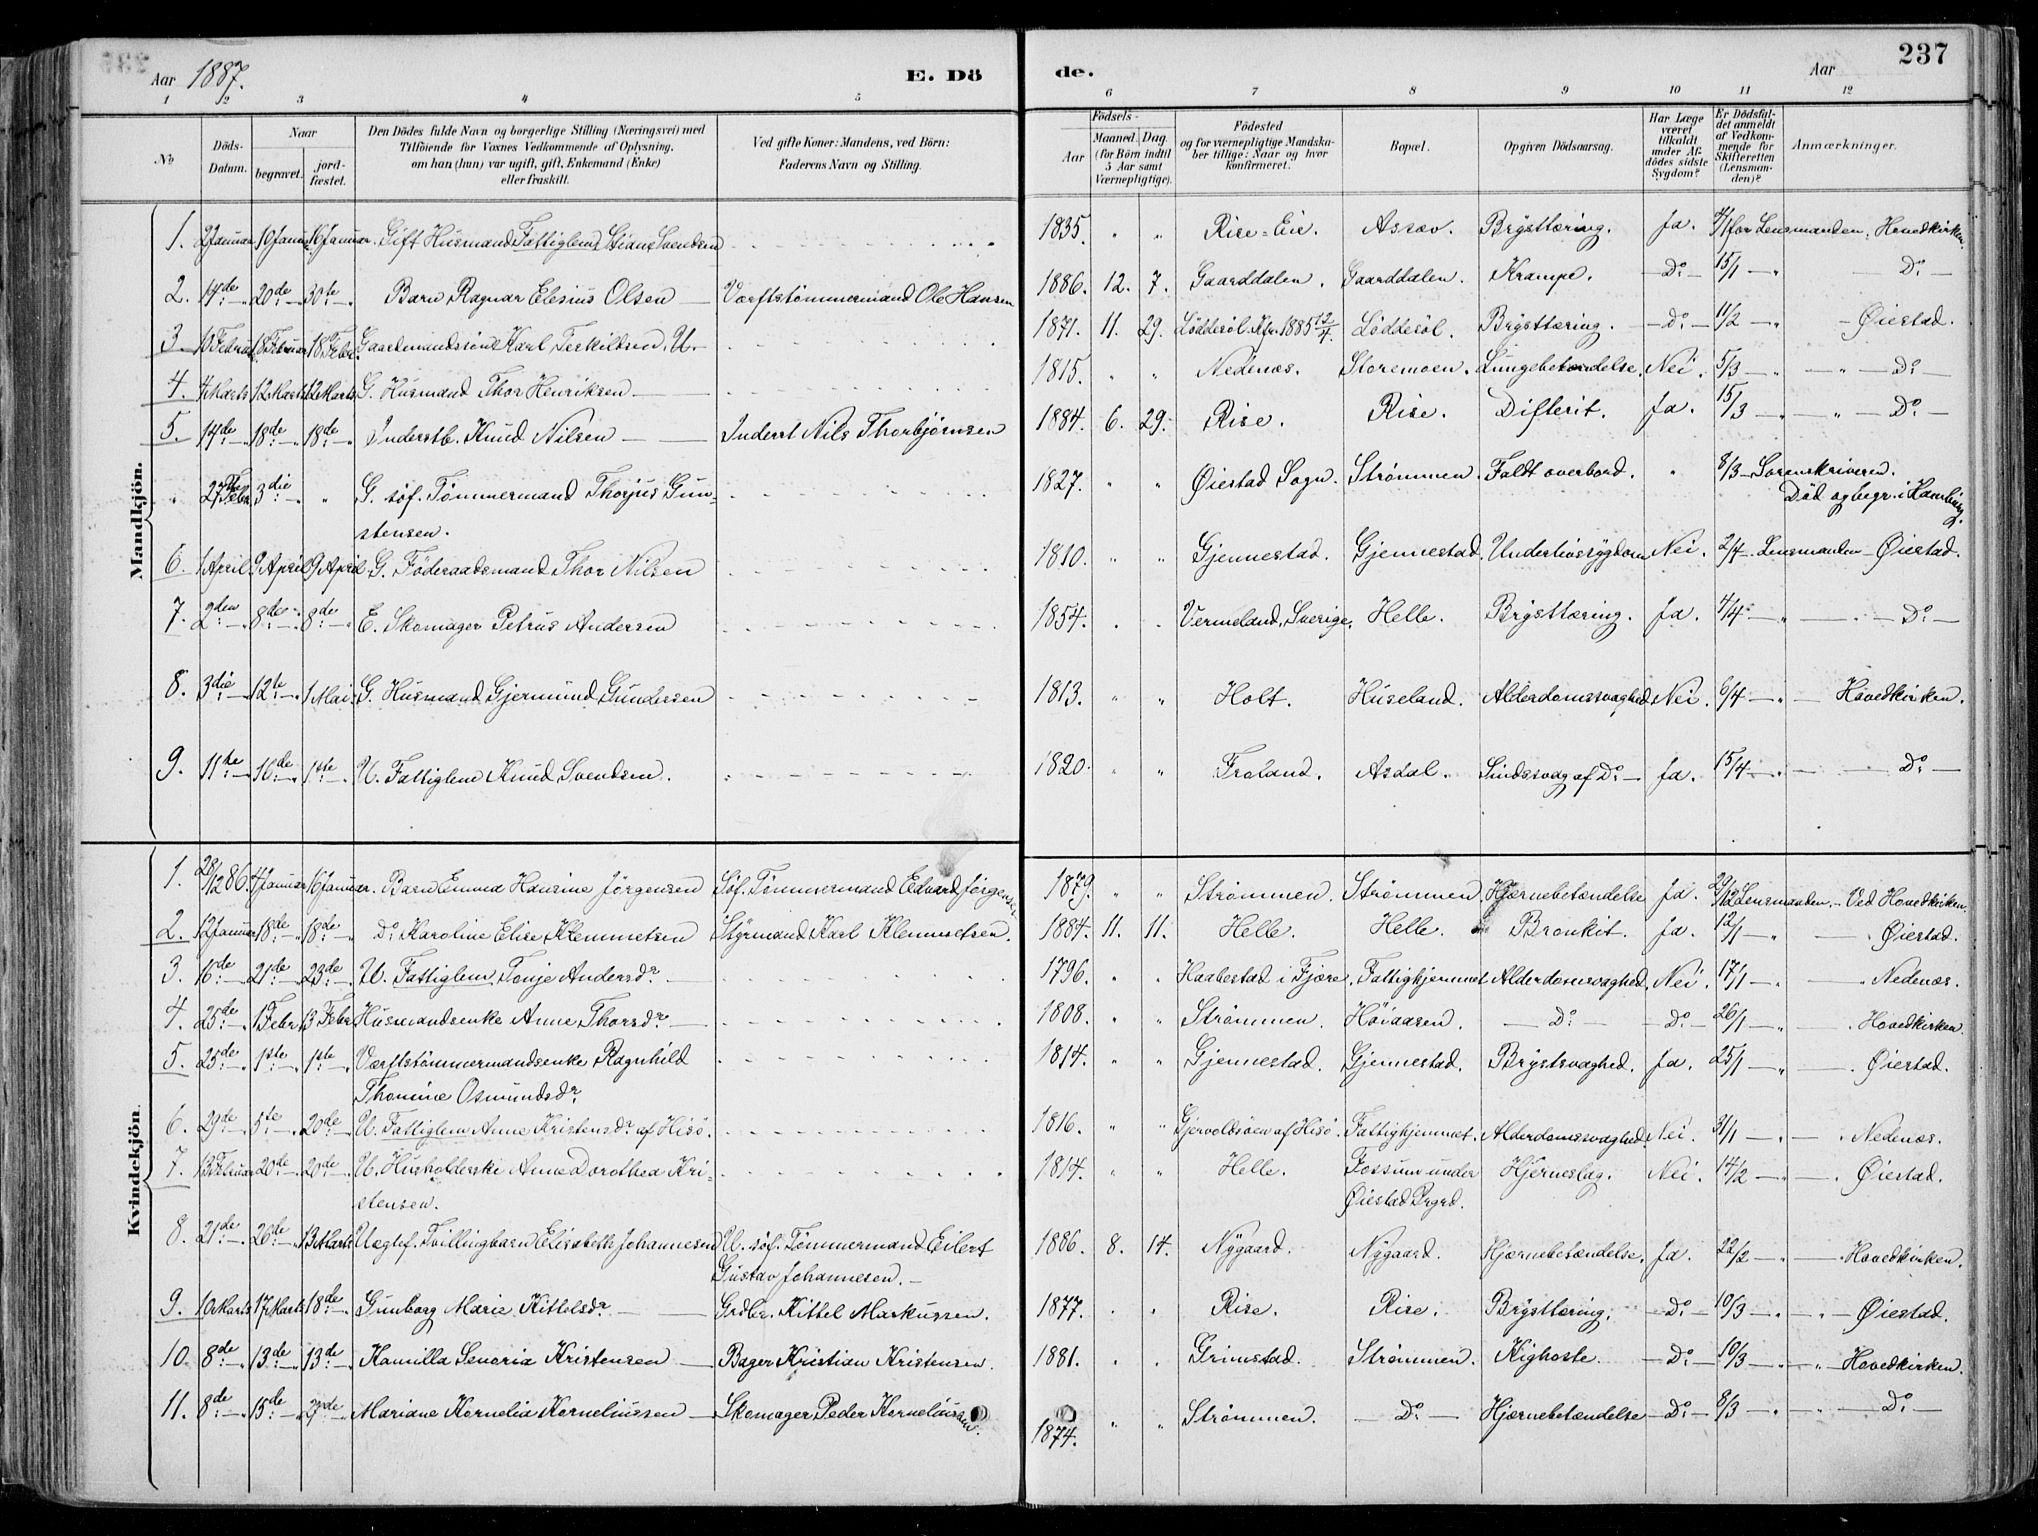 Aar 1887. E. Dö
de. Aar 237
1 2 3 4 5 6 7 8 9 10 11 12
No
Döds-Datum.
Naar
begravet.
jordfæstet.
Den Dödes fulde Navn og borgerlige Stilling (Næringsvei) med
Tilföiende for Voxnes Vedkommende af Oplysning,
om han (hun) var ugift, gift, Enkemand (Enke)
eller fraskilt.
Ved gifte Koner: Mandens, ved Börn:
Faderens Navn og Stilling.
Födsels-
Aar
Maaned. Dag.
(for Börn indtil
5 Aar samt
Værnepligtige).
Födested
og for værnepligtige Mandskaber tillige: Naar og hvor
konfirmeret.
Bopæl.
Opgiven Dödsaarsag.
Har Læge
været
tilkaldt
under Afdödes sidste
Sygdom?
Er Dödsfaldet anmeldt
af Vedkommende for
Skifteretten
(Lensmanden)?
Anmærkninger.
Mandkjön.
1. 2 Januar 10 Januar 16 Januar. Gift Husmand Fattiglem Stians Svendsen 1835. " " Rise-Eie. Assæv. Brÿsttæring. Ja. 4/1 for Lensmanden. Hovedkirken.
2. 14de 20de 30te Barn Ragnar Elesius Olsen Værftstømmermand Ole Hansen 1886. 12. 7. Gaarddalen. Gaarddalen. Krampe. Do 15/1 " Do
3. 10 Februar 18 Februar 18 Febr. Gaardmandssøn Karl Terkildsen. U. 1871. 11. 29. Løddesøl. Kfr. 1885 12/4. Løddesøl. Brÿsttæring. Do 11/2 " Øiestad.
4. 4 Marts 12 Marts 12 Marts G. Husmand Thor Henriksen 1815. " " Nedenæs. Storemoen. Lungebetændelse. Nei. 5/3 " Do
5. 14de 18de 18de Inderstb. Knud Nilsen Inderst Nils Thorbjørnsen 1884. 6. 29. Rise. Rise. Difterit. Ja. 15/3 " Do
" 27de Febr. 3die " G. søf. Tømmermand Thorjus Gun-
stensen. 1827. " " Øiestad Sogn. Strømmen. Faldt overbord. " 8/3 Sorenskriveren.
Død og begr. i Hamburg.
6. 1 April 9 April 9 April G. Føderaadsmand Thor Nilsen 1810. " " Gjennestad. Gjennestad. Underlivssÿgdom Nei. 2/4 Lensmanden Øiestad.
7. 2den 8de 8de E. Skomager Petrus Andersen 1854. " " Vermeland, Sverige. Helle. Brÿsttæring. Ja. 4/4 " Do
8. 3die 12te 1 Mai G. Husmand Gjermund Gundersen 1813. " " Holt. Huseland. Alderdomssvaghed Nei. 6/4 " Hovedkirken.
9. 11te 16de 1ste U. Fattiglem Knud Svendsen. 1820. " " Froland. Asdal. Sindssvag af Do Ja. 15/4 " Do
Kvindekjön.
1. 28/12 86. 4 Januar 16 Januar. Barn Emma Hansine Jørgensen Søf. Tømmermand Edvard Jørgensen 1879. " " Strømmen. Strømmen. Hjernebetændelse Ja. 29/12 Lensmanden. Ved Hovedkirken.
2. 12 Januar 18de 18de Do Karoline Elise Klemmetsen Stÿrmand Karl Klemmetsen. 1884. 11. 11. Helle. Helle. Bronkit. Ja. 12/1 " Øiestad.
3. 16de 21de 23de U. Fattiglem Tonje Andersdr 1796. " " Haabestad i Fjære. Fattighjemmet Alderdomssvaghed. Nei. 17/1 " Nedenæs.
4. 25de 1 Febr. 13 Febr. Husmandsenke Anne Thorsdr 1808. " " Strømmen. Høiaasen. Do Do 26/1 " Hovedkirken.
5. 25de 1ste 1ste Værftstømmermandsenke Ragnhild
Thomine Osmundsdr 1814. " " Gjennestad. Gjennestad. Brÿstsvaghed. Ja. 25/1 " Øiestad.
6. 29de 5te 20de U. Fattiglem Anne Kristensdr af Hisø. 1816. " " Gjervoldsøen af Hisø. Fattighjemmet. Alderdomssvaghed Nei. 31/1 " Nedenæs.
7. 13 Februar 20de 20de U. Husholderske Anne Dorothea Kri-
stensen. 1814. " " Helle. Fossum under
Øiestad Prgrd. Hjerneslag. Nei. 14/2 " Øiestad.
8. 21de 26de 13 Marts Uægtef. Tvillingbarn Elisabeth Johannesen U. søf. Tømmermand Eilert
Gustav Johannesen. 1886. 8. 14. Nÿgaard. Nÿgaard. Hjernebetændelse. Ja. 22/2 " Hovedkirken.
9. 10 Marts 17 Marts 18de Gunborg Marie Kittelsdr Grdbr. Kittel Markussen. 1877. " " Rise. Rise. Brÿsttæring. Do 10/3 " Øiestad.
10. 8de 13de 13de Kamilla Senoria Kristensen Bager Kristian Kristensen. 1881. " " Grimstad. Strømmen. Kighoste. Do 10/3 " Hovedkirken.
11. 8de 15de Mariane Kornelia Korneliussen Skomager Peder Korneliussen. 1874. " " Strømmen. Do Hjernebetændelse Do 8/3 " Do